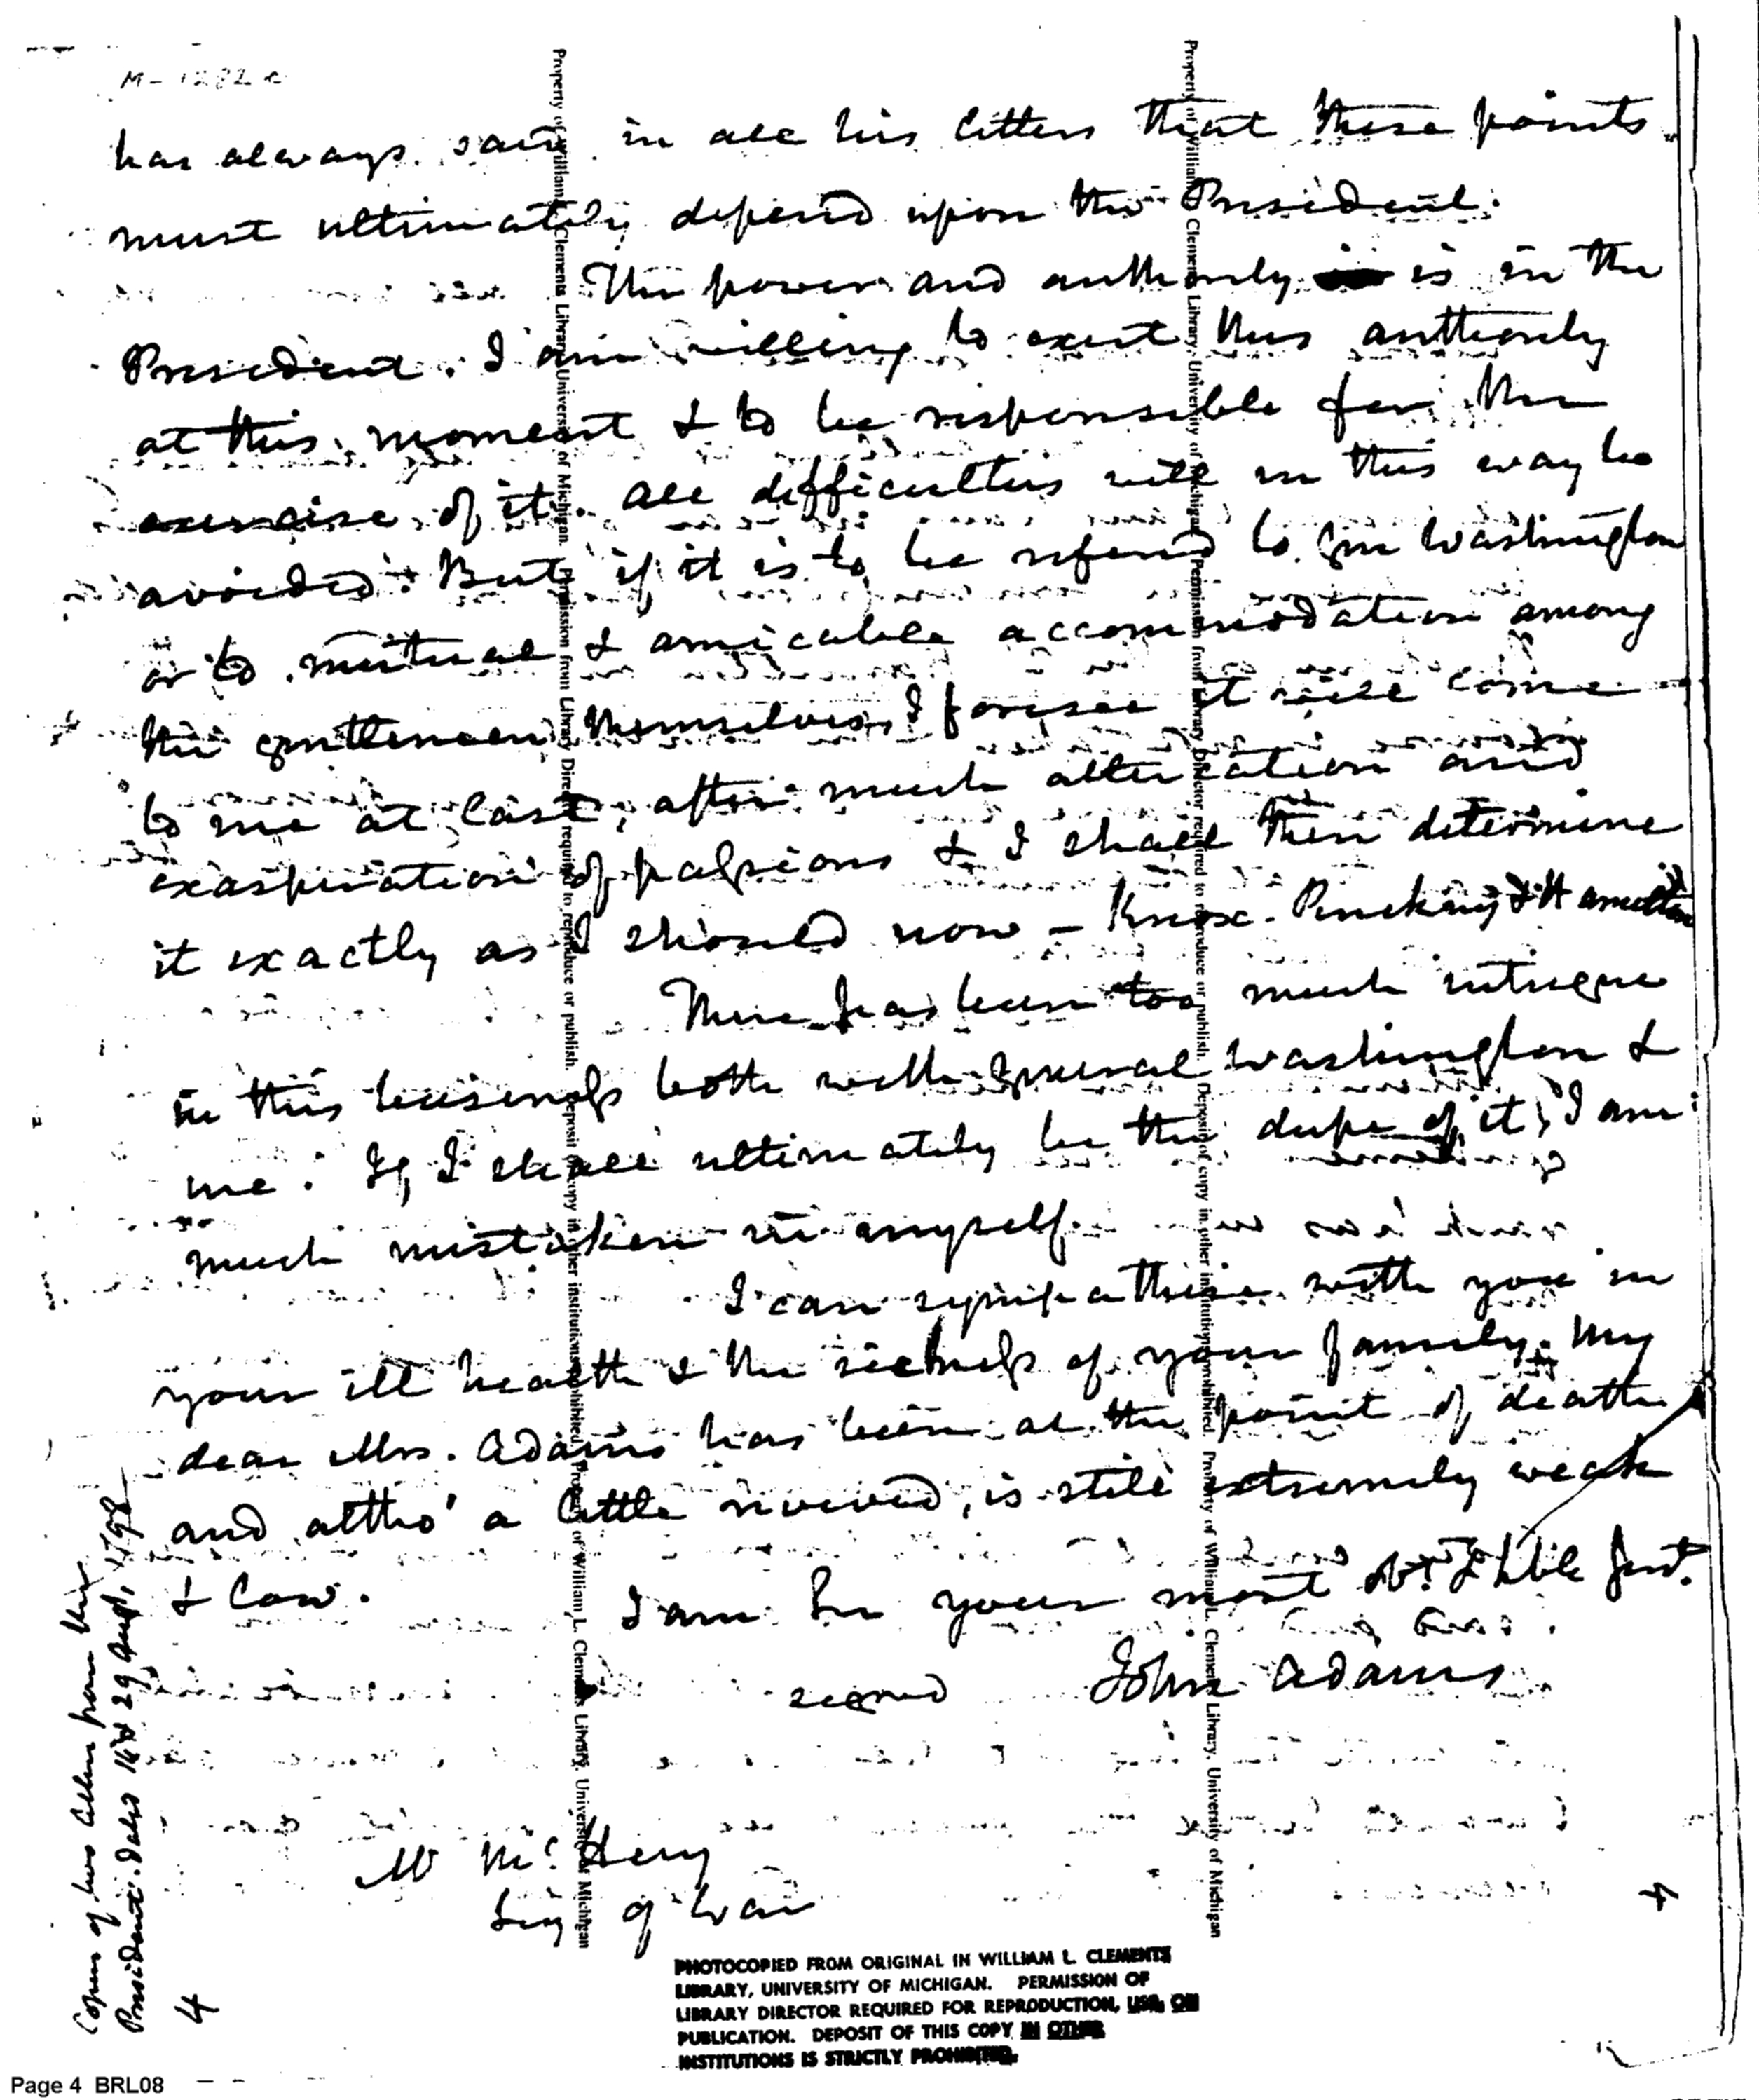 M-1282 c
has always said in all his letters that these points
must ultimately depend upon the President.
The power and authority is in the
President. I am willing to exert this authority
at this moment & to be responsible for the
exercise of it. All difficulties will in this way be
avoided. But if it is to be referred to Gen Washington
or to mutual & amicable accommodation among
the gentlemen themselves, I foresee it will come
to me at last, after much altercation and
exasperation of passions & I shall then determine
it exactly as I should now - Knox. Pinckney & Hamilton
There has been too much intrigue
in this business both with general Washington &
me. If, I shall ultimately be the dupe of it, I am
much mistaken in myself.
I can sympathise with you in
your ill health & the sickness of your family. My
dear Mrs. Adams has been at the point of death
and altho' a little revived, is still extremely weak
& low.
I am Sir your most obt. & hble Sert.
signed John Adams
Mr McHenry
Secy of War
Copies of two letters from the
President. dated 14 & 29 Augt. 1798
4
4
Property of William L. Clements Library, University of Michigan. Permission from Library Director required to reproduce or publish. Deposit of copy in other institutions prohibited. Property of William L. Clements Library, University of Michigan
Property of William L. Clements Library, University of Michigan. Permission from Library Director required to reproduce or publish. Deposit of copy in other institutions prohibited. Property of William L. Clements Library, University of Michigan
PHOTOCOPIED FROM ORIGINAL IN WILLIAM L. CLEMENTS
LIBRARY, UNIVERSITY OF MICHIGAN. PERMISSION OF
LIBRARY DIRECTOR REQUIRED FOR REPRODUCTION, USE, OR
PUBLICATION. DEPOSIT OF THIS COPY IN OTHER
INSTITUTIONS IS STRICTLY PROHIBITED.
Page 4 BRL08